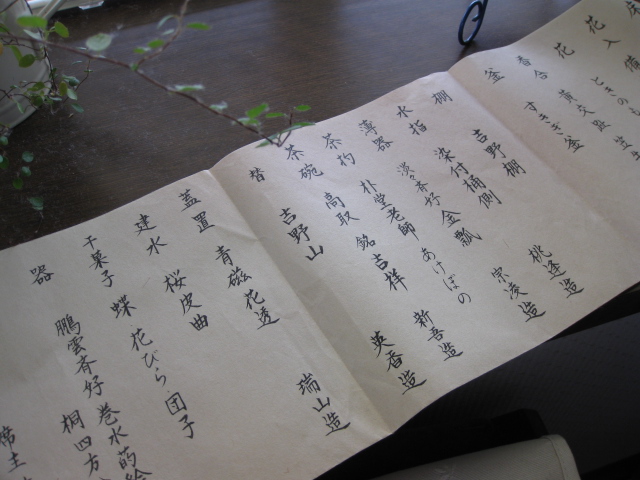 花入
花 ときのもの
香合 黄交趾
釜
棚 吉野棚 桃逢造
水指 染付桶側 宗凌造
薄器 淡々斉好 金瓢
茶杓 朴堂老師 あけぼの
茶碗 高取 銘吉祥 新吾造
替 吉野山 英香造
蓋置 青磁花透 瑞山造
建水 桜皮曲
干菓子 蝶 花びら 団子
器 鵬雲斉好 巻水蒔絵
桐四方
席主